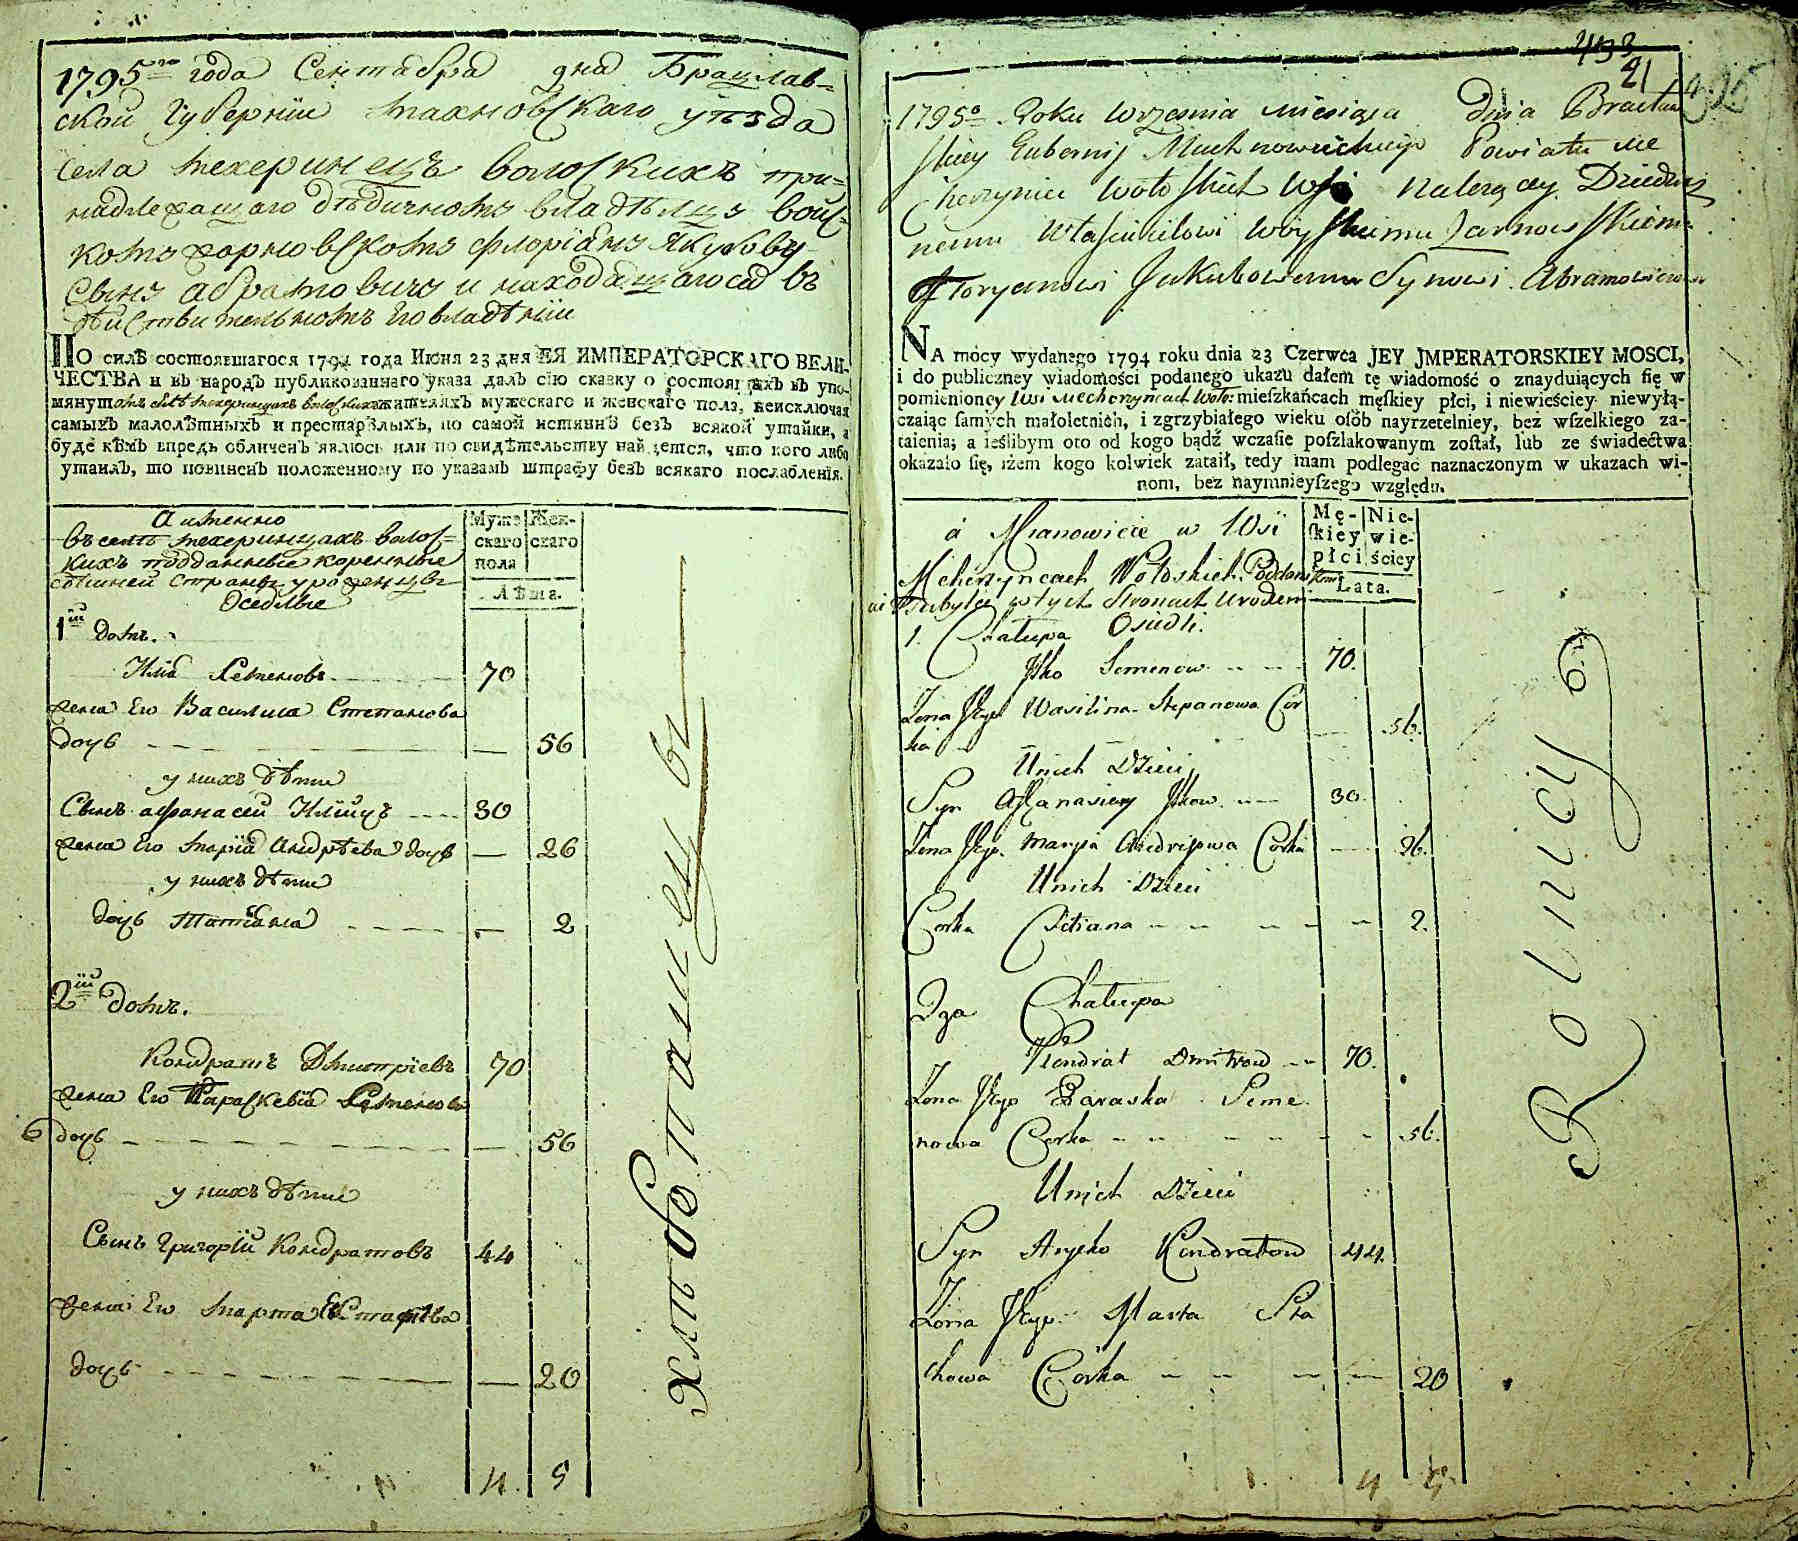 1795го года Сентабра дна Брацлав=
ской Губернїи Махновскаго уѣзда
села Мехеринецъ волоскихъ при=
надлежащаго дѣдичномъ владѣлцу войс=
комъ жорновскомъ Флорїамъ Якубову
Сынъ абрамовичу и находащагося въ
дѣйствителномъ Его владѣнїи
ПО силѣ состоявшагося 1794 года Июня 23 дня ЕЯ ИМПЕРАТОРСКАГО ВЕЛИ-
ЧЕСТВА и въ народъ публикованнаго указа далъ сїю сказку о состоящихъ въ упо-
мянутомъ селѣ Мехеринцахъ волоскихъ жителяхъ мужескаго и женскаго пола, неисключая
самыхъ малолѣтныхъ и престарѣлыхъ, по самой истиннѣ безъ всякой утайки, а
буде кѣмъ впредь обличенъ явлюсь или по свидѣтельству найдется, что кого либо
утаилъ, то повиненъ положенному по указамъ штрафу безъ всякаго послабленїя.
а имѣнно
въ селѣ мехеринцахъ волос=
кихъ подданные коренные
здѣшней страны уроженцы
оседлые
Муже
скаго
пола
Жен-
скаго
Лѣта.
1й домъ.
Илїа Семеновъ 70
жена Его Василиса Степанова
дочь — 56
у нихъ дѣти
Сынъ афанасей Илїинъ 30
жена Его Марїа Андрѣева дочь — 26
у нихъ дѣти
дочь Татїана — 2
2й домъ.
Кондратъ Дмитрїевъ 70
жена Его Параскевїа Семенова
дочь — 56
у нихъ дѣти
Сынъ Григорїй Кондратовъ 44
жена Его Марта Естафѣва
дочь — 20
4 5
хлѣбопашецы
493
21
1795o Roku Września Miesiąca dnia Bracław
skiey Gubernij Machnowieckiego Powiatu we
Cherzyniec Wołoskich Wsi Należącey Dziedzicz
nemu Właścicielowi Woyskiemu Żarnowskiemu
Floryanowi Jakubowemu Synowi Abramowiczowi
NA mocy wydanego 1794 roku dnia 23 Czerwca JEY JMPERATORSKIEY MOSCI,
i do publiczney wiadomości podanego ukazu dałem tę wiadomość o znayduiących ſię w
pomienioney Wsi Mecherzyncach Woło: mieſzkańcach męſkiey płci, i niewieściey niewyłą-
czaiąc ſamych małoletnich, i zgrzybiałego wieku oſób nayrzetelniey, bez wſzelkiego za-
taienia; a ieślibym oto od kogo bądź wczaſie poſzlakowanym zoſtał, lub ze świadectwa
okazało ſię, iżem kogo kolwiek zataił, tedy mam podlegać naznaczonym w ukazach wi-
nom, bez naymnieyſzego względu.
á Mianowicie w Wsi
Mcherzyncach Wołoskich Poddani
w tych Stronach Urodzeni
Osiadli.
Mę-
ſkiey
płci
Nie-
wie-
ściey
Lata.
1. Chałupa
Jłko Semenow 70.
Żona Jego Wasilina Stepanowa Cor
ka 56.
U nich Dzieci
Syn Afanasiey Jłkow 30.
Żona Jego Marya Andrijowa Corka 26.
U nich Dzieci
Corka Tetiana 2.
2ga Chałupa
Kondrat Dmitrow 70.
Żona Jego Paraska Seme
nowa Corka 56.
U nich Dzieci
Syn Hryćko Kondratow 44.
Żona Jego Marta Sta
chowa Córka 20
4 5
Rolnicy